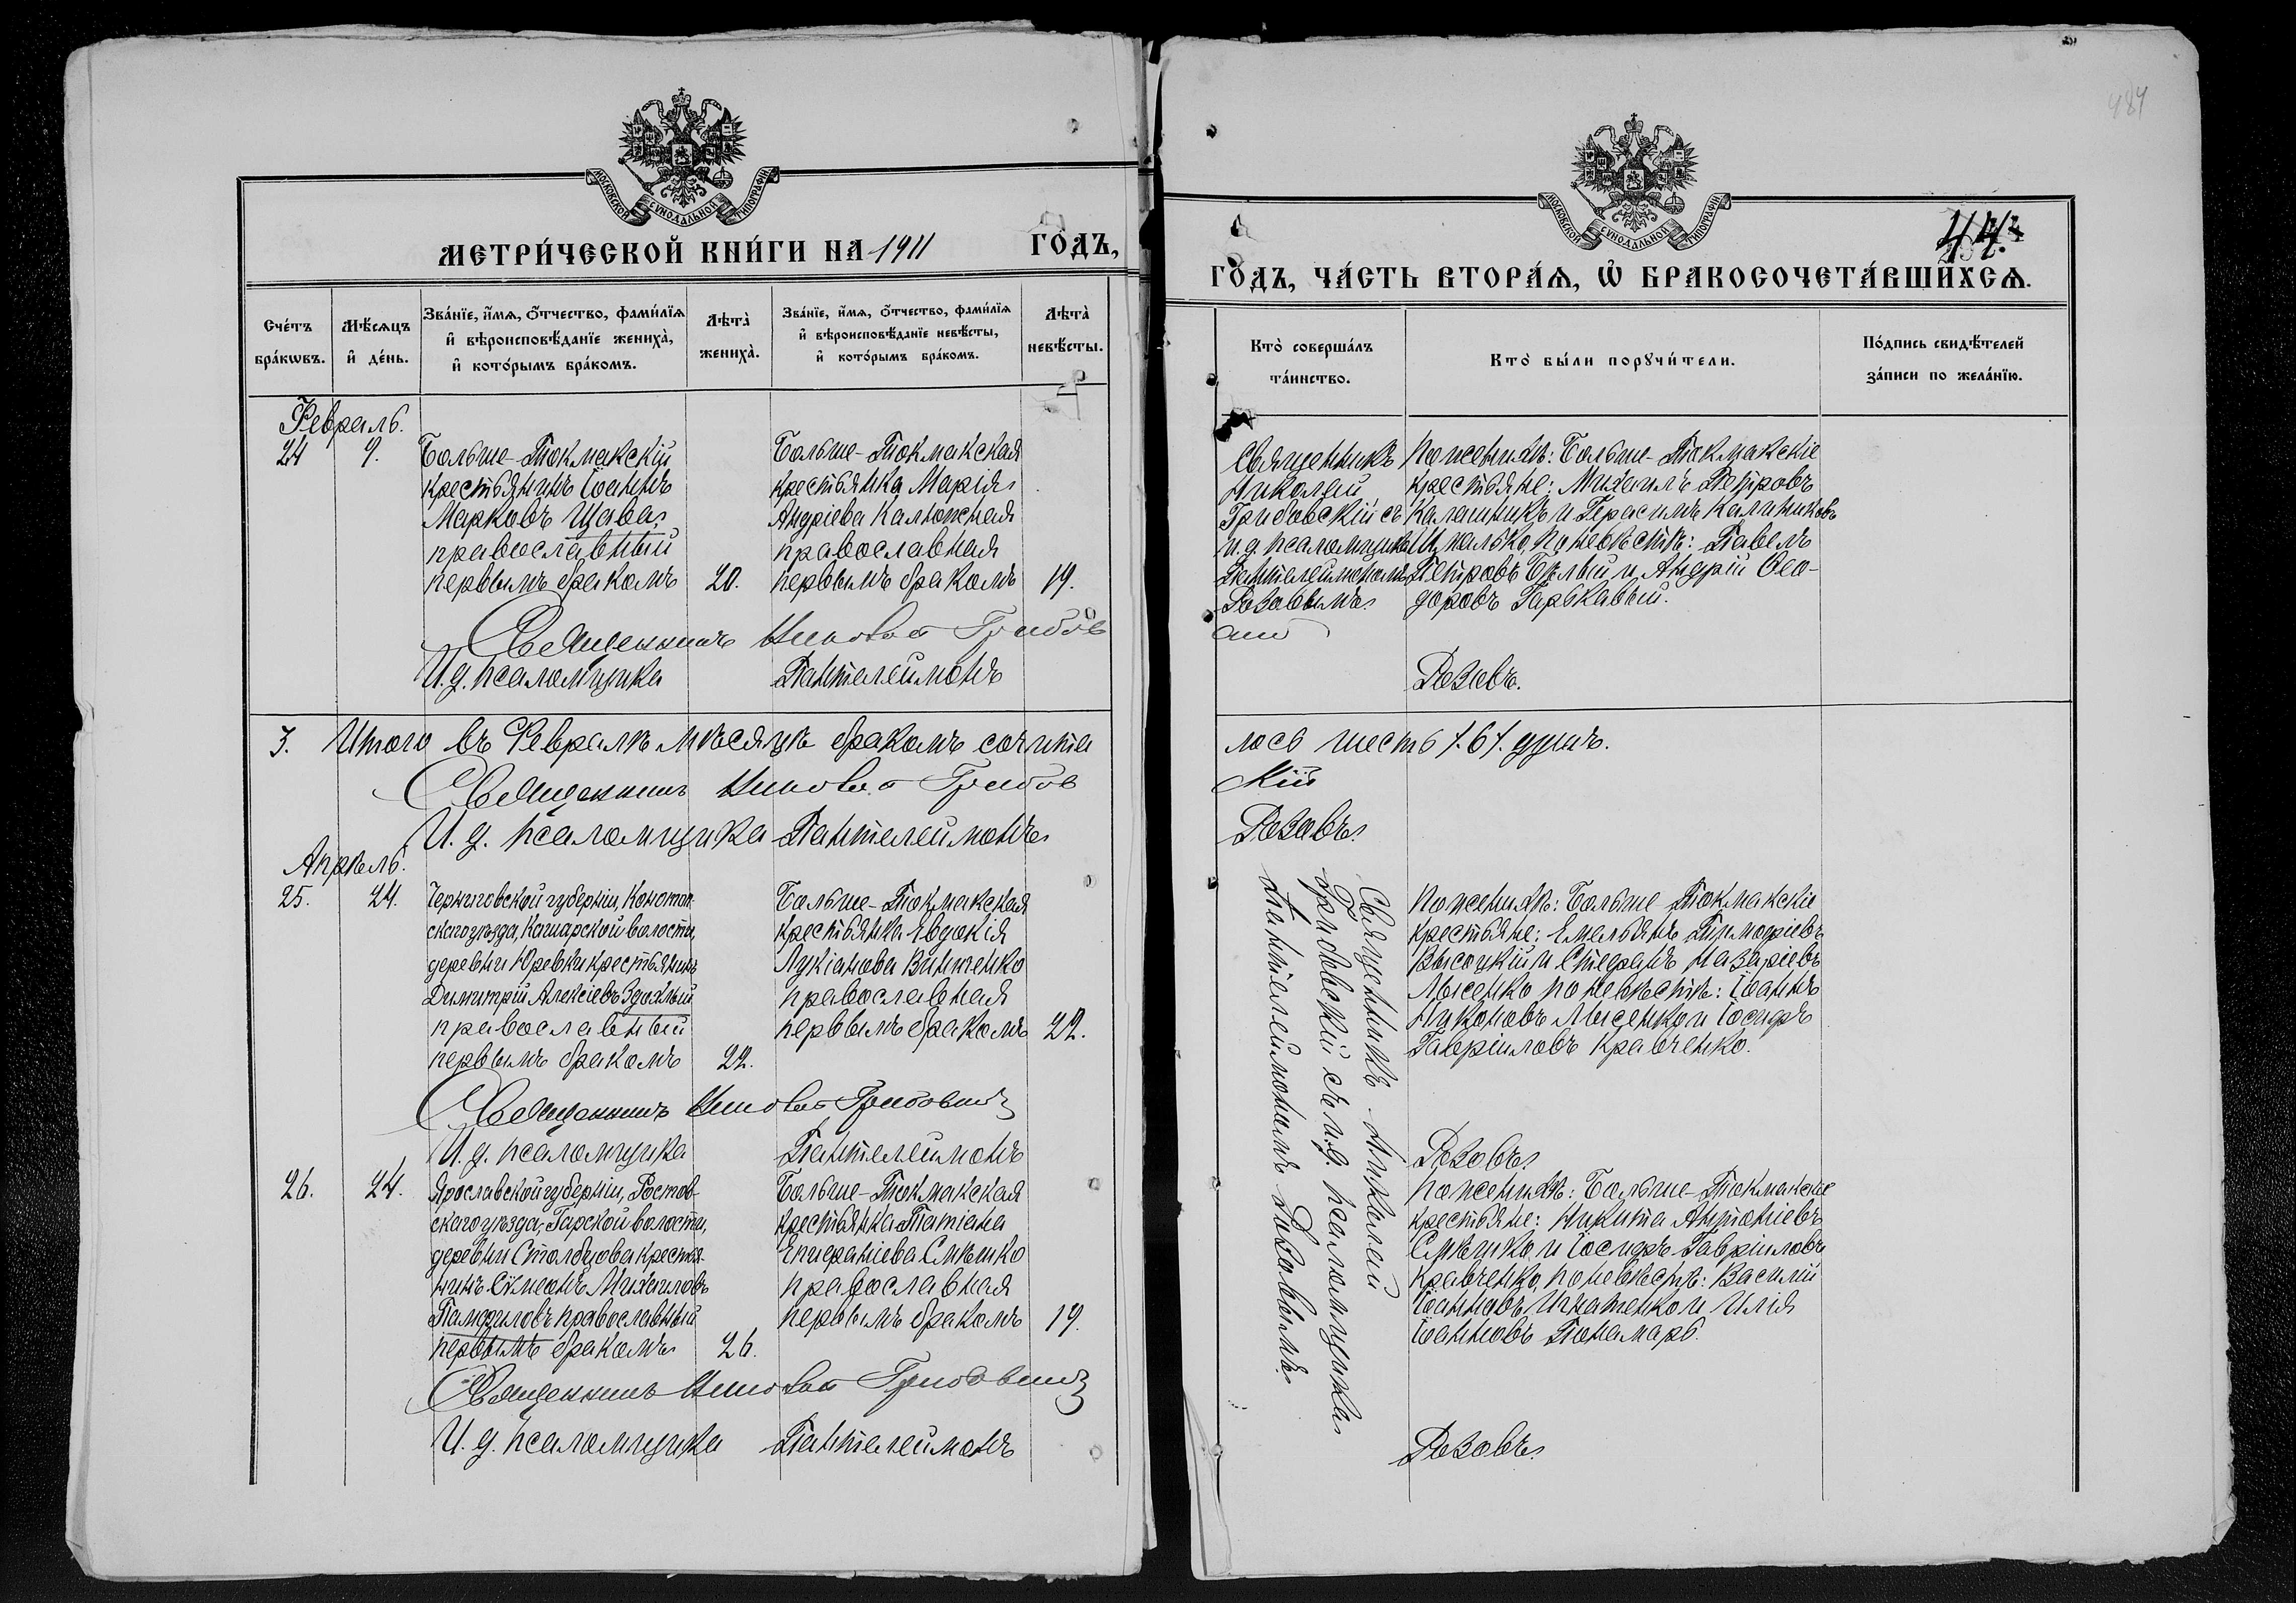 МОСКОВСКОЙ СУНОДАЛЬНОЙ ТИПОГРАФІИ
МЕТРИ́ЧЕСКОЙ КНИ́ГИ НА 1911 ГОДЪ,
Сче́тъ бра́кѡвъ.
Мѣ́сяцъ и҆ де́нь.
Зва́нїе, и҆́мѧ, ѻ҆́тчество, фами́лїѧ
и҆ вѣроисповѣ́данїе жениха̀,
и҆ кото́рымъ бра́комъ.
Лѣта̀ жениха̀.
Зва́нїе, и҆́мѧ, ѻ҆́тчество, фами́лїѧ
и҆ вѣроисповѣ́данїе невѣ́сты,
и҆ кото́рымъ бра́комъ.
Лѣта̀ невѣ́сты.
Февраль.
24 9.
Больше-Токмакскій
крестьянинъ Іоаннъ
Марковъ Щава,
православный
первымъ бракомъ 20.
Больше-Токмакская
крестьянка Марія
Андріева Калюжная
православная
первымъ бракомъ 19.
Священникъ Николай Грибов
И. д. псаломщика Пантелеимонъ
3. Итого въ Февралѣ мѣсяцѣ бракомъ сочета
Священникъ Николай Грибов
И. д. псаломщика Пантелеимонъ
Апрѣль.
25. 24.
Черниговской губерніи, Конотоп-
скаго уѣзда, Кашарской волости,
деревни Юревки крестьянинъ
Димитрій Алексіевъ Здохлый
православный
первымъ бракомъ 22.
Больше-Токмакская
крестьянка Евдокія
Лукіанова Винченко
православная
первымъ бракомъ 22.
Священникъ Николай Грибовскій
И. д. псаломщика Пантелеимонъ
26. 24.
Ярославской губерніи, Ростов-
скаго уѣзда, Гарской волости,
деревни Столбцова крестья-
нинъ Сѵмеонъ Михаиловъ
православный
первымъ бракомъ 26.
Больше-Токмакская
крестьянка Татіана
Епифаніева Смѣшко
православная
первымъ бракомъ 19.
Священникъ Николай Грибовскій
И. д. псаломщика Пантелеимонъ
484
МОСКОВСКОЙ СУНОДАЛЬНОЙ ТИПОГРАФІИ
44.
ГО́ДЪ, ЧА́СТЬ ВТОРА́Ѧ, Ѡ҆ БРАКОСОЧЕТА́ВШИХСѦ.
Кто̀ соверша́лъ
та́инство.
Кто̀ бы́ли порꙋчи́тели.
По́дпись свидѣ́телей
за́писи по жела́нїю.
Священникъ
Николай
Грибовскій съ
и. д. псаломщика
Пантелеимономъ
Розовымъ
По женихѣ: Больше-Токмакскіе
крестьяне: Михаилъ Петровъ
Калашникъ и Герасимъ Калиниковъ
Шмалько, по невѣстѣ: Павелъ
Петровъ Бѣлый и Андрій Ѳео-
доровъ Гаркавый.
скій
Розовъ.
лось шесть /6/ душъ.
скій
Розовъ
Священникъ Николай
Грибовскій съ и. д. псаломщика
Пантелеимономъ Розовымъ.
По женихѣ: Больше-Токмакскіе
крестьяне: Емельянъ Тимофіевъ
Высоцкій и Стефанъ Назаріевъ
Лысенко по невѣстѣ: Іоаннъ
Никоновъ Лысенко и Іосифъ
Гавріиловъ Кравченко.
Розовъ
По женихѣ: Больше-Токмакскіе
крестьяне: Никита Антоніевъ
Смѣшко и Іосифъ Гавріиловъ
Кравченко, по невѣстѣ: Василій
Іоанновъ Игнатенко и Илія
Іоанновъ Понамарь.
Розовъ